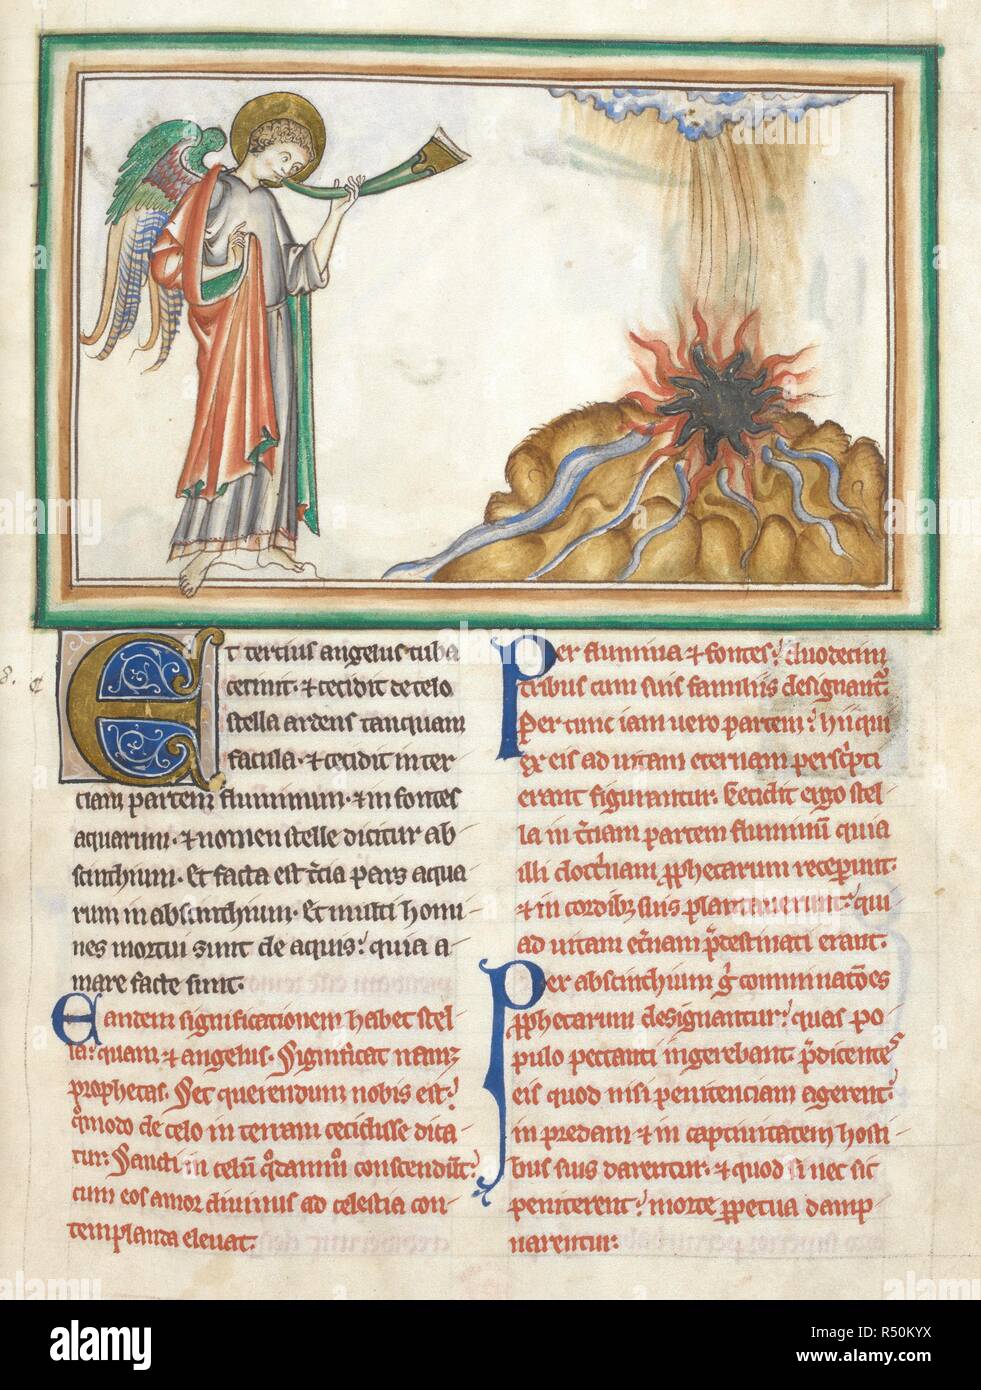 Et tertius angelus tuba
cecinit. ⁊ cecidit de celo
stella ardens tanquam
facula. ⁊ cecidit in ter-
ciam partem fluminum. ⁊ in fontes
aquarum. ⁊ nomen stelle dicitur ab-
scinthium. Et facta est t̄cia pars aqua-
rum in abscinthium. Et multi homi-
nes mortui sunt de aquis: quia a-
mare facte sunt.
Eandem significationem habet stel-
la: quam ⁊ angelus. Significat namq;
prophetas. Set querendum nobis est:
q̄modo de celo in terram cecidisse dica-
tur. Sancti in celum q̄dammō conscendunt:
cum eos amor diuinus ad celestia con-
templanda eleuat.
Per flumina ⁊ fontes: duodecim
tribus cum suis familiis designant̄.
Per tunc iam uero partem: hii qui
ex eis ad uitam eternam perscripti
erant figurantur. Cecidit ergo stel-
la in t̄ciam partem fluminū quia
illi doctrinam pphetarum receperunt.
⁊ in cordib; suis plantauerunt: qui
ad uitam et̄nam p̄destinati erant.
Per abscinthium ḡ comminatōes
pphetarum designantur: quas po-
pulo peccanti ingerebant. p̄dicentes
eis quod nisi penitenciam agerent:
in predam ⁊ in captiuitatem hosti-
bus suis darentur. ⁊ quod si nec sic
peniterent: morte ppetua damp-
narentur:
8. c
alamy
Image ID: R50KYX
www.alamy.com